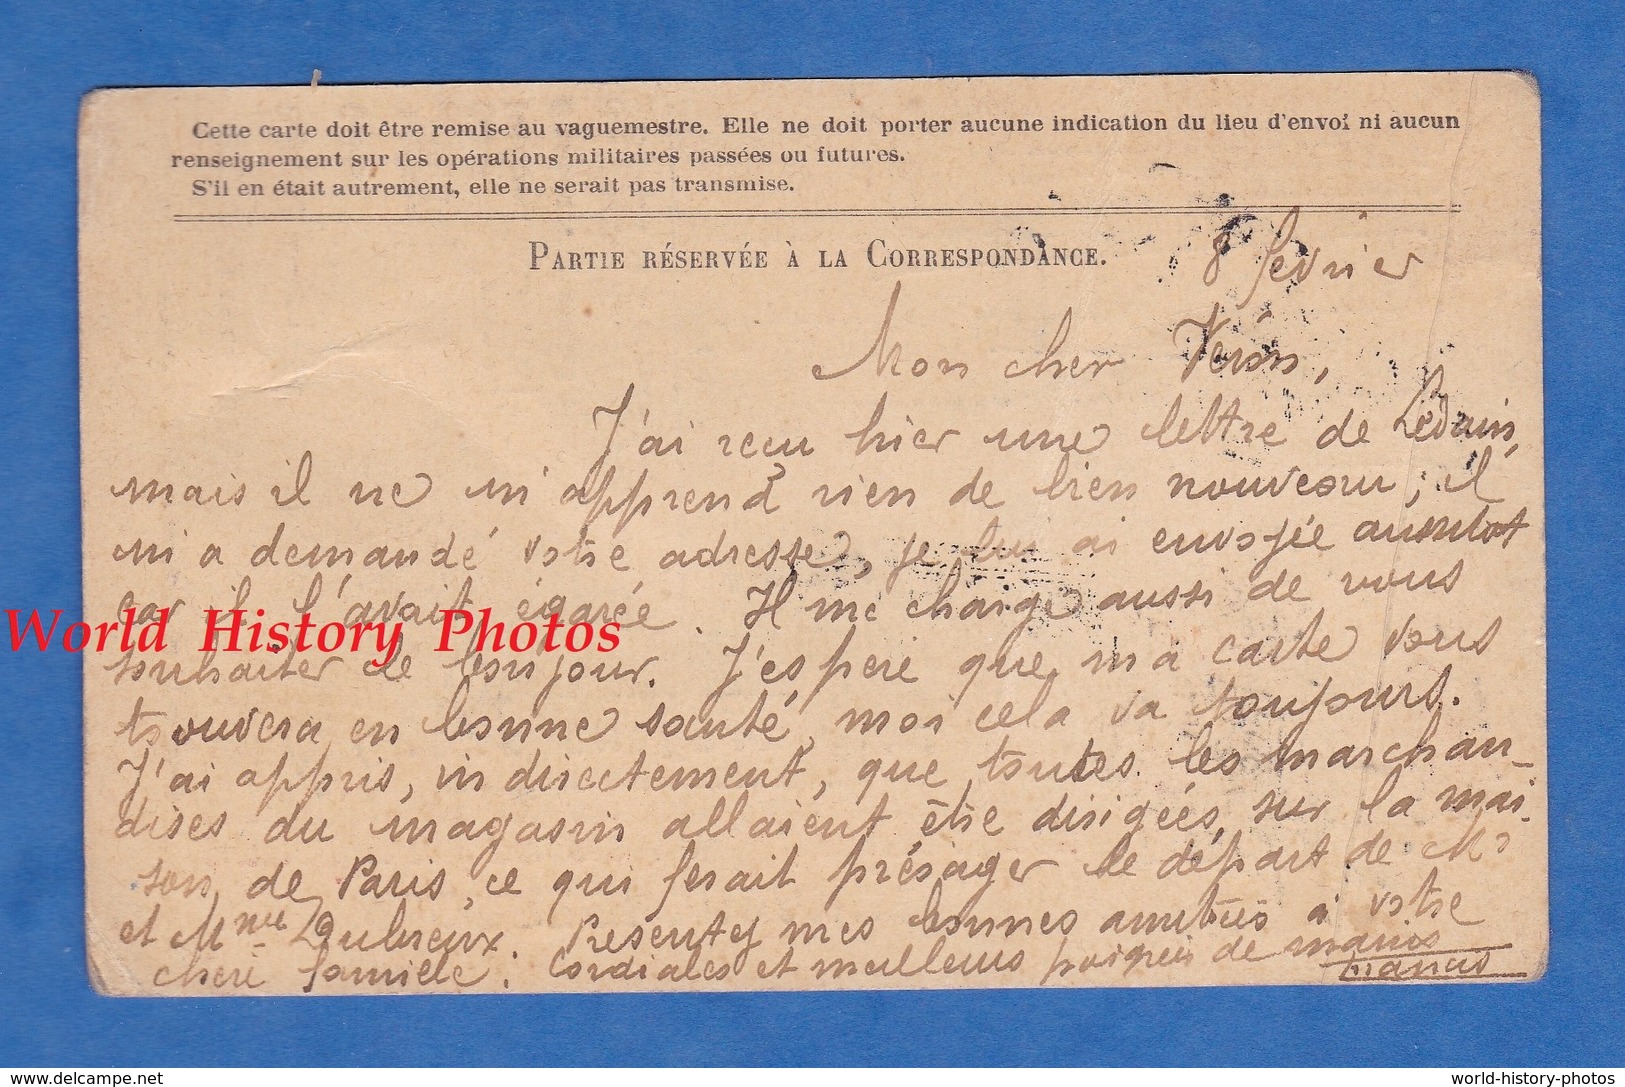 Cette carte doit être remise au vaguemestre. Elle ne doit porter aucune indication du lieu d'envoi ni aucun
renseignement sur les opérations militaires passées ou futures.
S'il en était autrement, elle ne serait pas transmise.
PARTIE RÉSERVÉE À LA CORRESPONDANCE.
8 février
Mon cher Véron,
J'ai reçu hier une lettre de Ledrain,
mais il ne m'apprend rien de bien nouveau ; il
m'a demandé votre adresse, je lui ai envoyée aussitôt
car il l'avait égarée. Il me charge aussi de vous
World History Photos
souhaiter le bonjour. J'espère que ma carte vous
trouvera en bonne santé, moi cela va toujours.
J'ai appris, indirectement, que toutes les marchan-
dises du magasin allaient être dirigées sur la mai-
son de Paris, ce qui ferait présager le départ de Mr
et Mme Dubreux. Présentez mes bonnes amitiés à votre
chère famille. Cordiales et meilleures poignées de mains
Marius
www.delcampe.net
world-history-photos